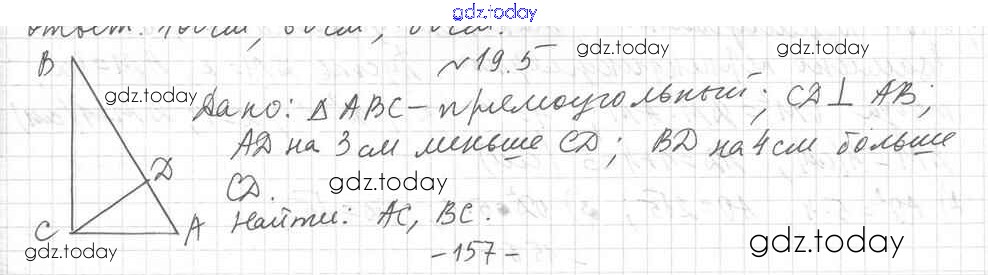 gdz.today
ответ:
№19.5
gdz.today
B
gdz.today
Дано: Δ ABC – прямоугольный; CD ⊥ AB;
AD на 3 см меньше CD; BD на 4 см больше
D
CD.
gdz.today
Найти: AC, BC.
C
A
gdz.today
-157-
gdz.today